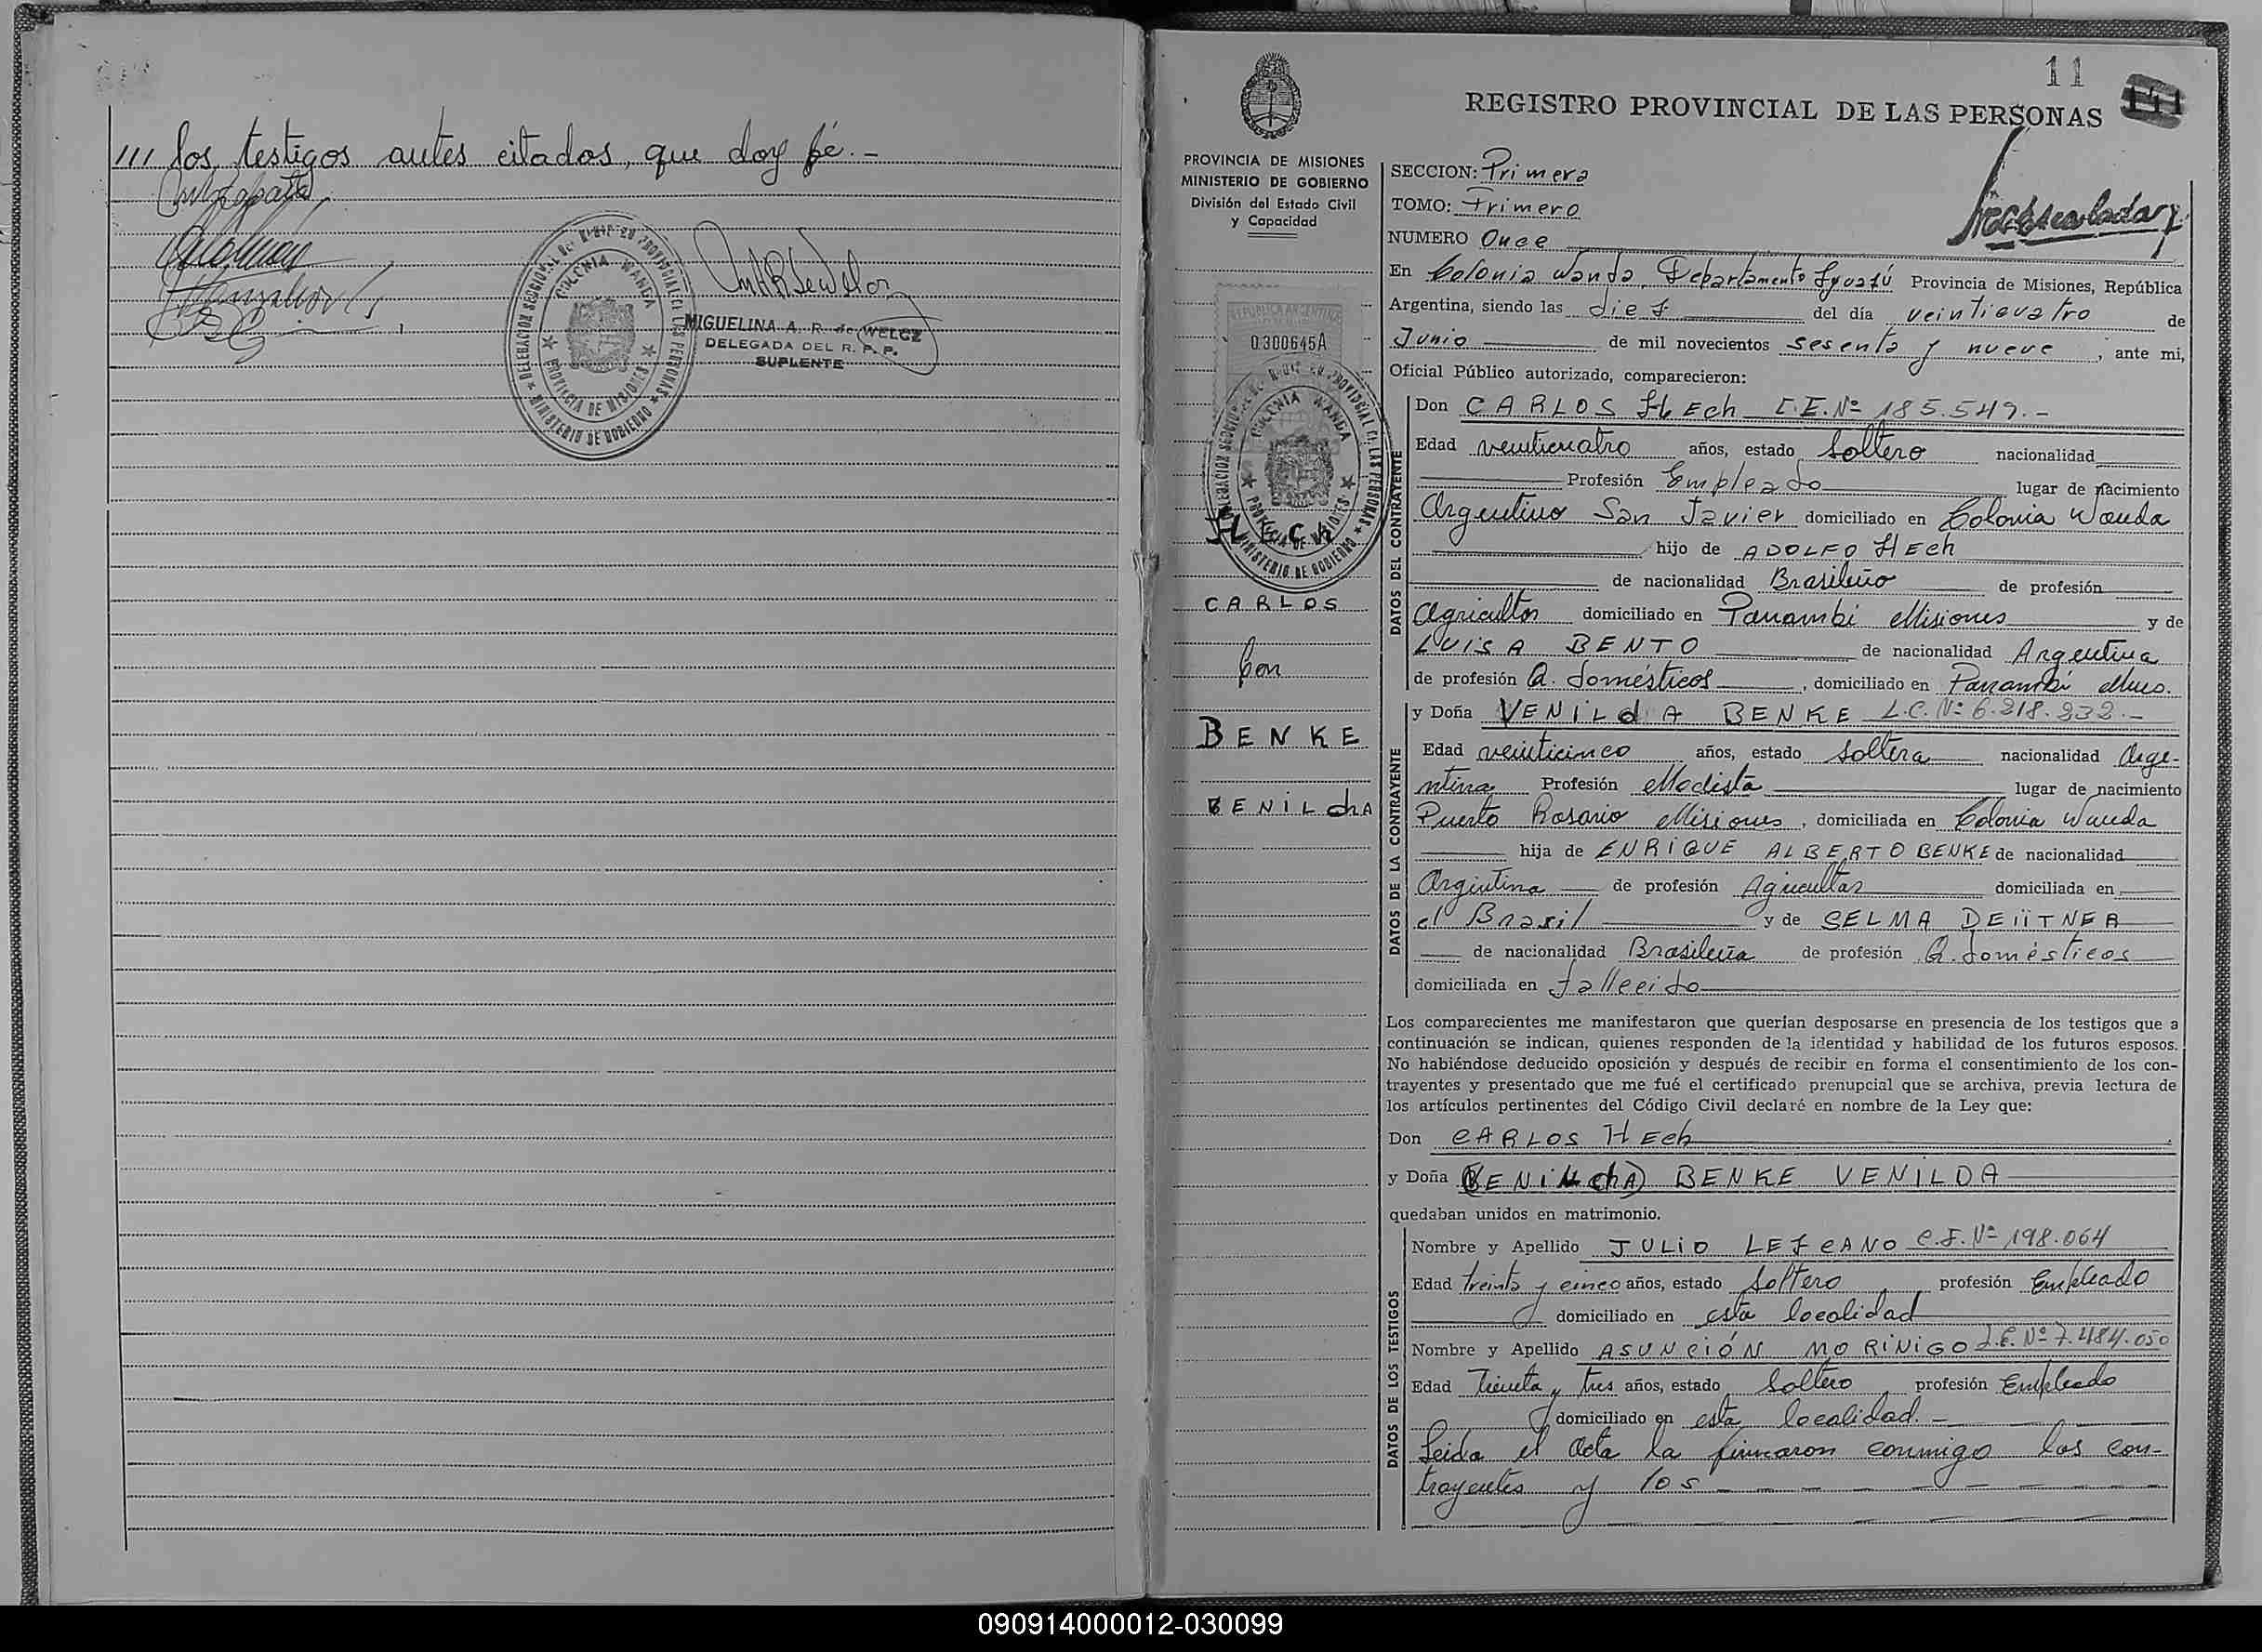 /// los testigos antes citados, que doy fé.-
COLONIA WANDA
PROVINCIA DE MISIONES
MINISTERIO DE GOBIERNO
MIGUELINA A. R. de WELCZ
DELEGADA DEL R. P. P.
SUPLENTE
11
REGISTRO PROVINCIAL DE LAS PERSONAS
PROVINCIA DE MISIONES
MINISTERIO DE GOBIERNO
División del Estado Civil
y Capacidad
REPUBLICA ARGENTINA
0300645A
COLONIA WANDA
PROVINCIA DE MISIONES
MINISTERIO DE GOBIERNO
HECH
CARLOS
Con
BENKE
BENILdhA
SECCION: Primera
TOMO: Primero
NUMERO Once
En Colonia Wanda, Departamento Iguazú Provincia de Misiones, República
Argentina, siendo las diez del día veinticuatro de
Junio de mil novecientos sesenta y nueve, ante mi,
Oficial Público autorizado, comparecieron:
DATOS DEL CONTRAYENTE
Don CARLOS HEch C.I. Nº 185.549.-
Edad veinticuatro años, estado Soltero nacionalidad
Profesión Empleado lugar de nacimiento
Argentino San Javier domiciliado en Colonia Wanda
hijo de ADOLFO HEch
de nacionalidad Brasileño de profesión
Agricultor domiciliado en Panambi Misiones y de
LUISA BENTO de nacionalidad Argentina
de profesión Q. domésticos, domiciliado en Panambi Mnes.
DATOS DE LA CONTRAYENTE
y Doña VENILdA BENKE L.C. Nº 6.218.232.-
Edad veinticinco años, estado Soltera nacionalidad Arge-
ntina Profesión Modista lugar de nacimiento
Puerto Rosario Misiones, domiciliada en Colonia Wanda
hija de ENRIQUE ALBERTO BENKE de nacionalidad
Argentina de profesión Agricultor domiciliada en
el Brasil y de SELMA DEIITNER
de nacionalidad Brasileña de profesión Q. domésticos
domiciliada en fallecido
Los comparecientes me manifestaron que querían desposarse en presencia de los testigos que a
continuación se indican, quienes responden de la identidad y habilidad de los futuros esposos.
No habiéndose deducido oposición y después de recibir en forma el consentimiento de los con-
trayentes y presentado que me fué el certificado prenupcial que se archiva, previa lectura de
los artículos pertinentes del Código Civil declaré en nombre de la Ley que:
Don CARLOS HEch
y Doña (BENILdhA) BENKE VENILDA
quedaban unidos en matrimonio.
DATOS DE LOS TESTIGOS
Nombre y Apellido JULIO LEZCANO C.I. Nº 198.064
Edad treinta y cinco años, estado Soltero profesión Empleado
domiciliado en esta localidad
Nombre y Apellido ASUNCIÓN MORINIGO L.E. Nº 7.484.050
Edad Treinta y tres años, estado Soltero profesión Empleado
domiciliado en esta localidad.-
Leida el Acta la firmaron conmigo los con-
trayentes y los
090914000012-030099